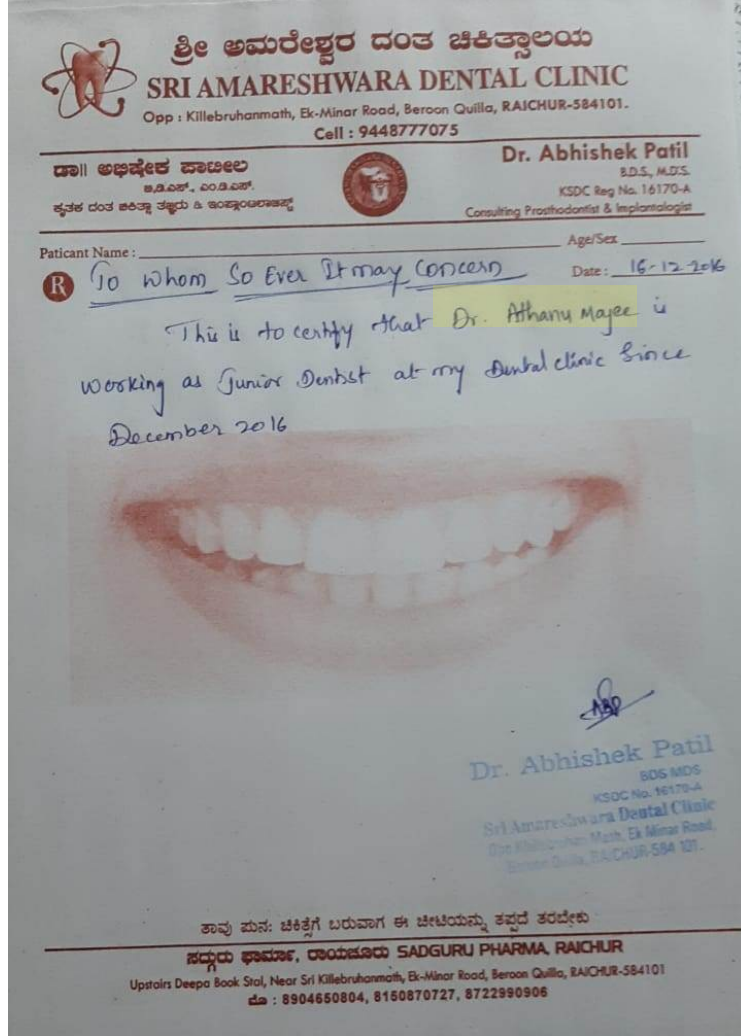 ಶ್ರೀ ಅಮರೇಶ್ವರ ದಂತ ಚಿಕಿತ್ಸಾಲಯ
SRI AMARESHWARA DENTAL CLINIC
Opp : Killebruhanmath, Ek-Minar Road, Beroon Quilla, RAICHUR-584101.
Cell : 9448777075
ಡಾ|| ಅಭಿಷೇಕ ಪಾಟೀಲ
ಬಿ.ಡಿ.ಎಸ್., ಎಂ.ಡಿ.ಎಸ್.
ಕೃತಕ ದಂತ ಚಿಕಿತ್ಸಾ ತಜ್ಞರು & ಇಂಪ್ಲಾಂಟಲಾಜಿಸ್ಟ್
Dr. Abhishek Patil
B.D.S., M.D.S.
KSDC Reg No. 16170-A
Consulting Prosthodontist & Implantologist
Paticant Name :
Age/Sex
R To Whom So Ever It may Concern
Date : 16-12-2016
This is to certify that Dr. Athanu Majee is
working as Junior Dentist at my Dental clinic Since
December 2016
ABP
Dr. Abhishek Patil
BDS MDS
KSDC No. 16170-A
Sri Amareshwara Dental Clinic
Opp Killebruhan Math, Ek Minar Road,
Beroon Quilla, RAICHUR-584 101.
ತಾವು ಪುನಃ ಚಿಕಿತ್ಸೆಗೆ ಬರುವಾಗ ಈ ಚೀಟಿಯನ್ನು ತಪ್ಪದೆ ತರಬೇಕು
ಸದ್ಗುರು ಫಾರ್ಮಾ, ರಾಯಚೂರು SADGURU PHARMA, RAICHUR
Upstairs Deepa Book Stal, Near Sri Killebruhanmath, Ek-Minar Road, Beroon Quilla, RAICHUR-584101
ಮೊ : 8904650804, 8150870727, 8722990906